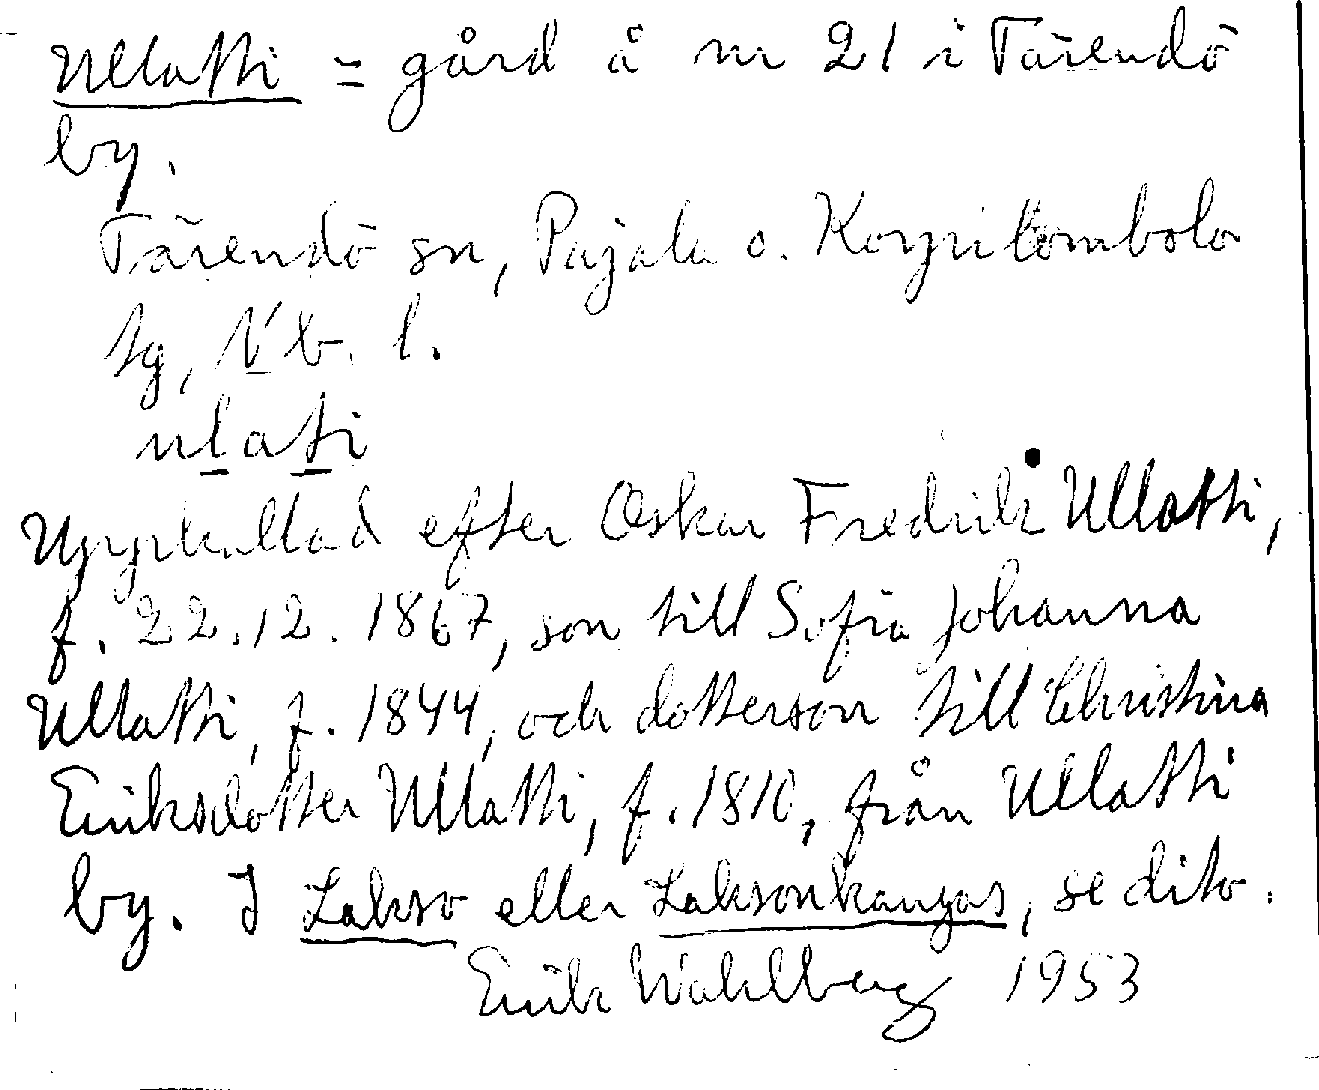 Ullatti = gård å nr 21 i Tärendö
by.
Tärendö sn, Pajala o. Korpilombolo
tg, Nb. l.
ulati
Uppkallad efter Oskar Fredrik Ullatti,
f. 22.12.1867, son till Sofia Johanna
Ullatti, f. 1844, och dotterson till Christina
Eriksdotter Ullatti, f. 1810, från Ullatti
by. I Lakso eller Laksonkangas, se dito.
Erik Wahlberg 1953